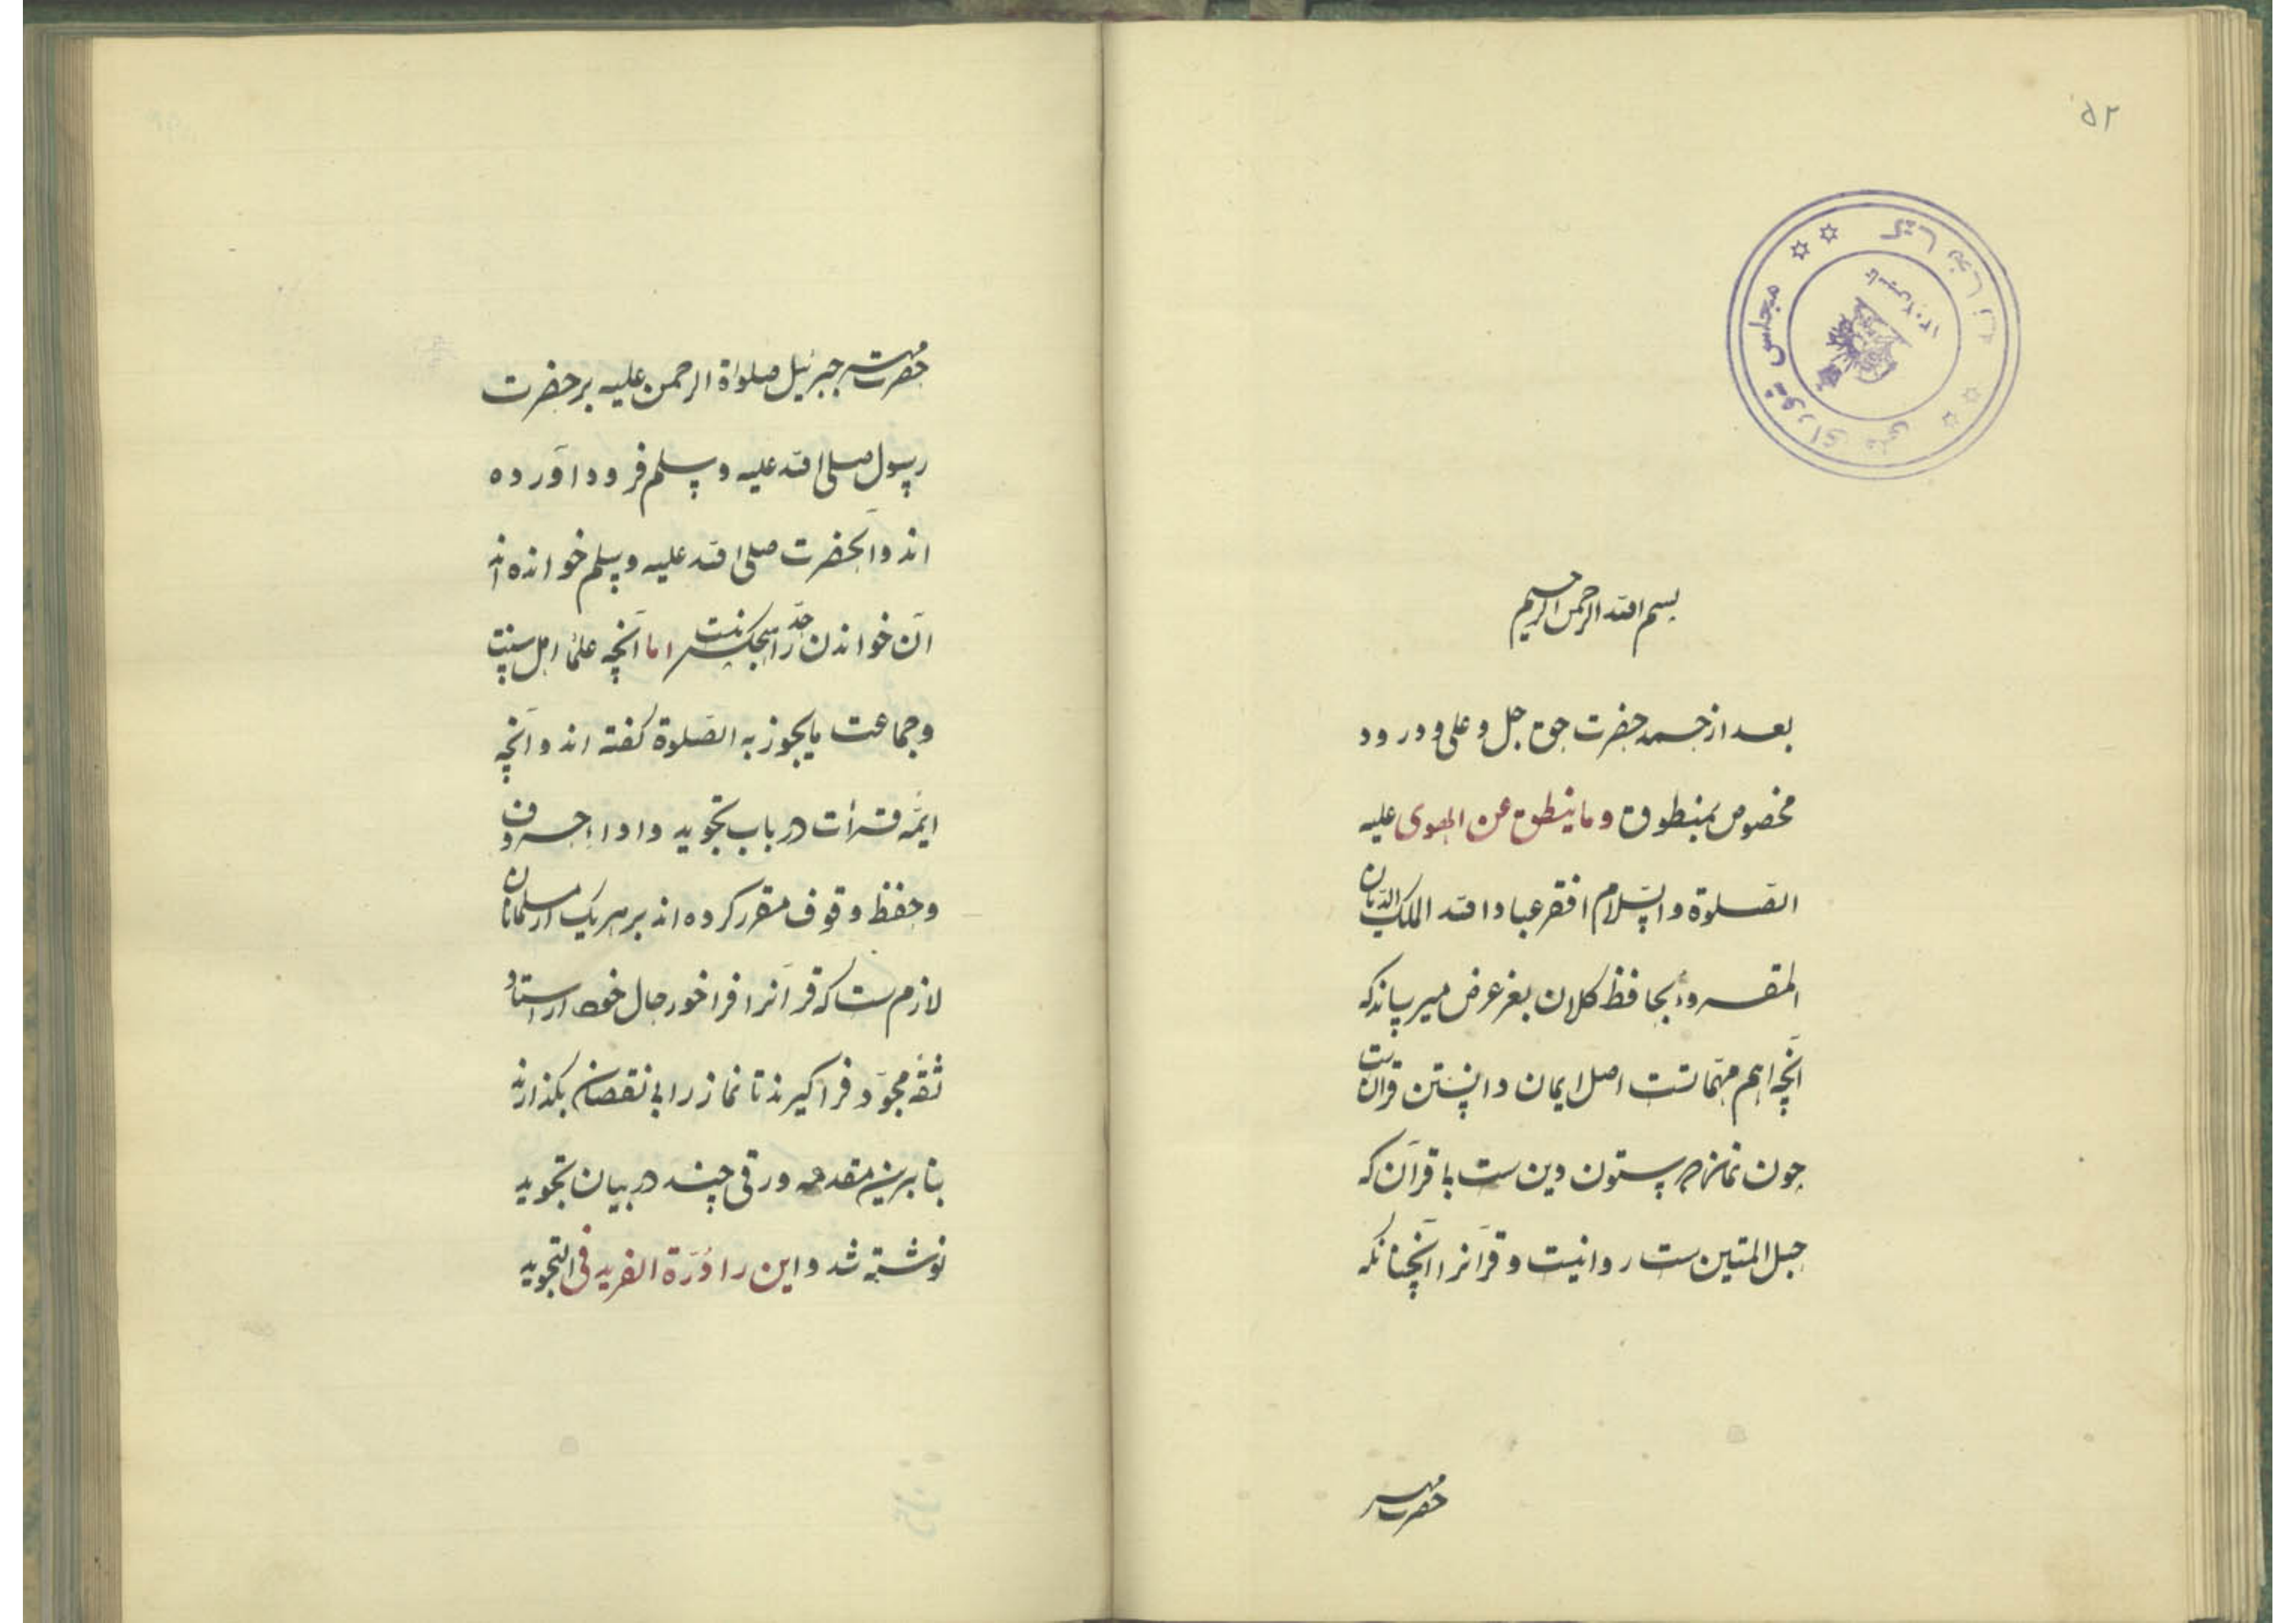 ۵۲
کتابخانه
مجلس شورای ملی
بسم الله الرحمن الرحیم
بعد از حمد حضرت حق جل و علی و درود
مخصوص بمنطوق وما ینطق عن الهوی علیه
الصّلوة والسّلام افقر عباد الله الملک الدیّان
المقرو بحافظ کلان بعز عرض میرساند که
آنچه اهم مهمّاتست اصل ایمان دانستن قرآنست
چون نماز که ستون دین ست با قرآن که
حبل المتین ست روانیست و قرآنرا آنچنانکه
حضرت مهتر
حضرت مهتر جبرئیل صلواة الرحمن علیه بر حضرت
رسول صلی الله علیه وسلم فرود آورده
اند و آنحضرت صلی الله علیه وسلم خوانده اند
آن خواندن حدّ هیچکس نیست اما آنچه علماء اهل سنت
وجماعت مایجوز به الصّلوة گفته اند و آنچه
ایمّه قرأت در باب تجوید و ادا احروف
وحفظ وقوف مقرر کرده اند بر هر یک از مسلمانان
لازم ست که قرآنرا فراخور حال خود از استاد
ثقهٔ مجوّد فرا گیرند تا نماز را بی نقصان بگذارند
بنا برین مقدمه ورقی چند در بیان تجوید
نوشته شد و این را دُرّة الفرید فی التجوید